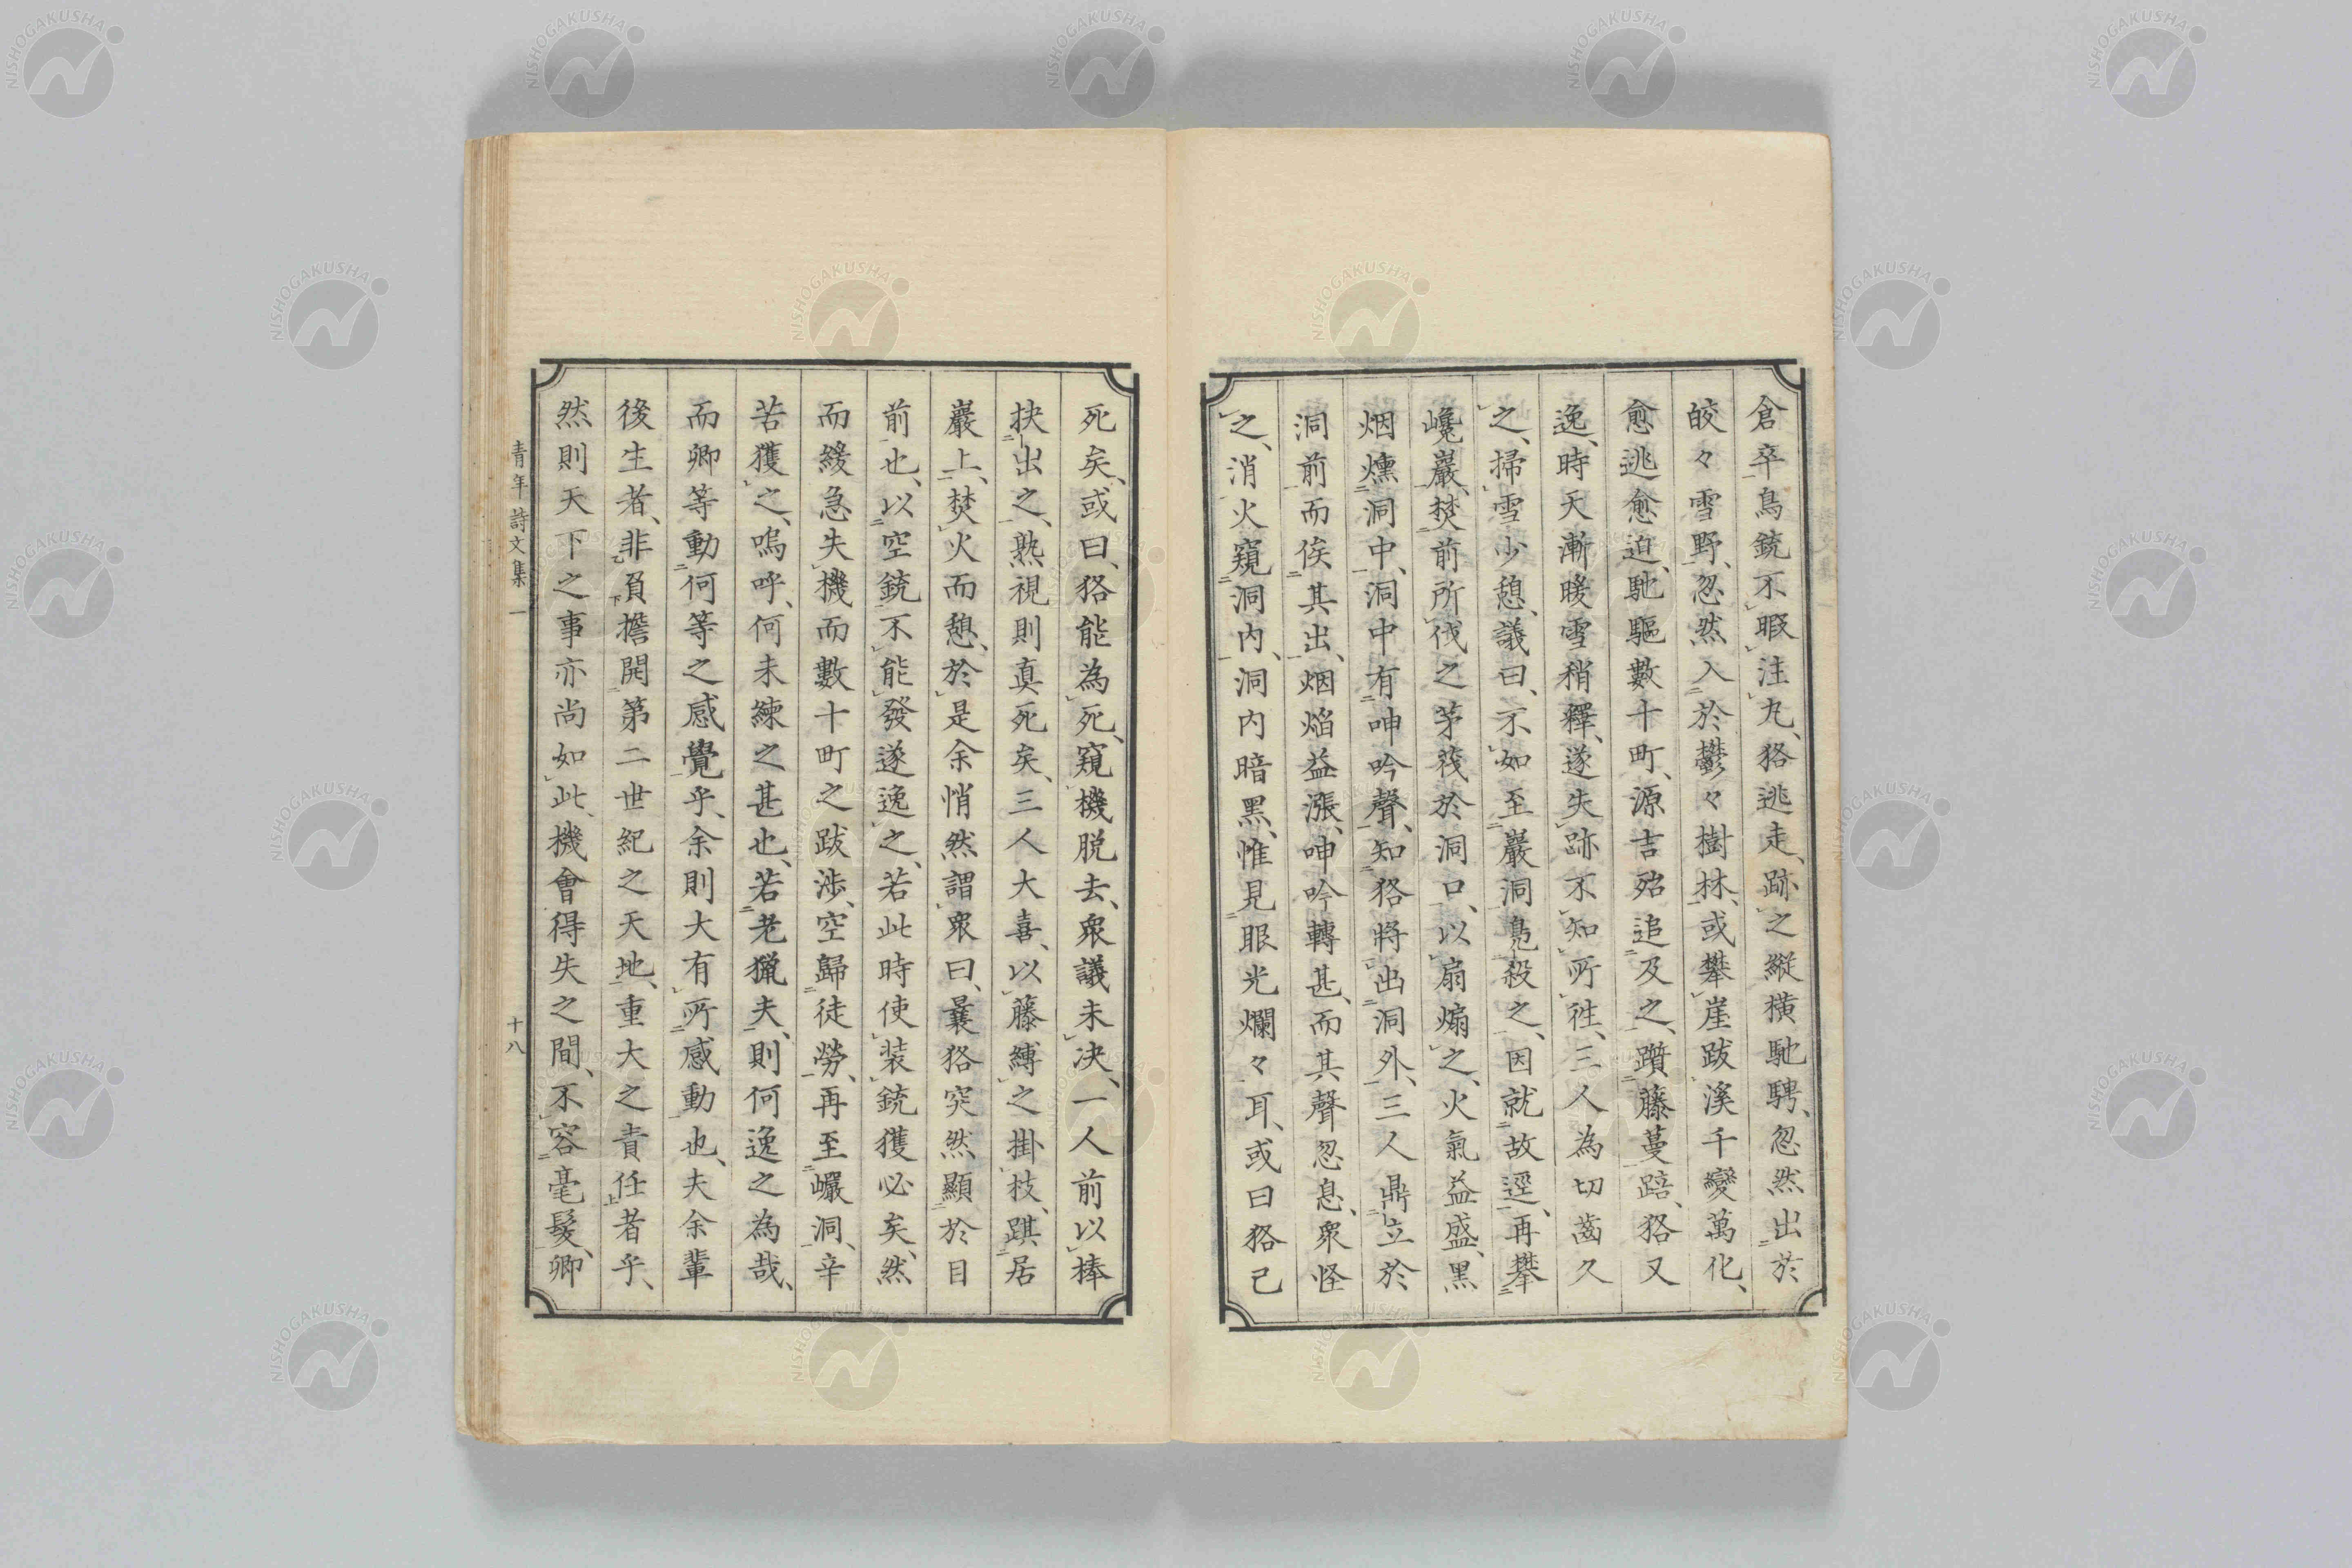 倉卒鳥銃不暇注丸、狢逃走、跡之縱橫馳騁、忽然出於
皎々雪野、忽然入於鬱々樹林、或攀崖跋溪千變萬化、
愈逃愈迫、馳驅數十町、源吉殆追及之、躓藤蔓踣、狢又
逸、時天漸暖雪稍釋、遂失跡不知所徃、三人為切齒久
之、掃雪少憩、議曰、不如至巖洞鳧殺之、因就故逕、再攀
巉巖、焚前所伐之茅筏於洞口、以扇煽之、火氣益盛、黑
烟燻洞中、洞中有呻吟聲、知狢將出洞外、三人鼎立於
洞前而俟其出、烟焰益漲、呻吟轉甚、而其聲忽息、衆怪
之、消火窺洞内、洞内暗黑、惟見眼光爛々耳、或曰狢己
死矣、或曰、狢能為死、窺機脱去、衆議未決、一人前以棒
抉出之、熟視則真死矣、三人大喜、以藤縛之掛枝、踑居
巖上、焚火而憩、於是余悄然謂衆曰、曩狢突然顯於目
前也、以空銃不能發遂逸之、若此時使装銃獲必矣、然
而緩急失機而數十町之跋涉、空歸徒勞、再至巗洞、辛
苦獲之、嗚呼、何未練之甚也、若老獵夫、則何逸之為哉、
而卿等動何等之感覺乎、余則大有所感動也、夫余輩
後生者、非負擔開第二世紀之天地、重大之責任者乎、
然則天下之事亦尚如此、機會得失之間、不容毫髮、卿
青年詩文集一
十八
NISHOGAKUSHA